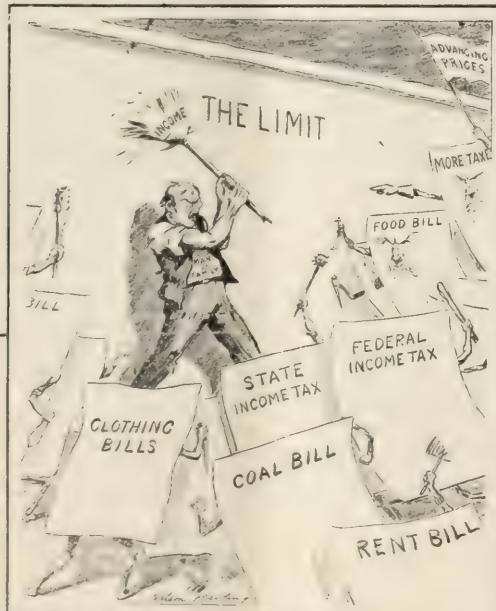 ADVANCING
PRICES
INCOME
THE LIMIT
MORE TAXE
FOOD BILL
BILL
FEDERAL
INCOME TAX
STATE
INCOME TAX
CLOTHING
BILLS
COAL BILL
RENT BILL